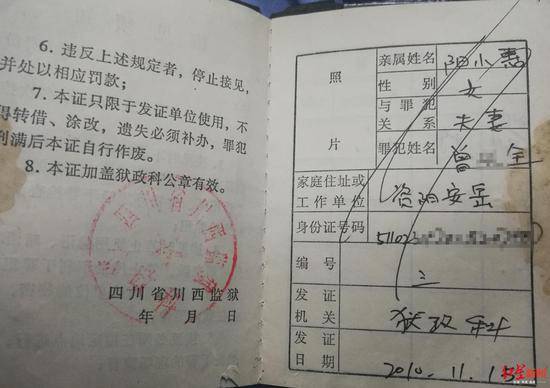 6. 违反上述规定者，停止接见，
并处以相应罚款；
7. 本证只限于发证单位使用，不
得转借、涂改，遗失必须补办，罪犯
刑满后本证自行作废。
8. 本证加盖狱政科公章有效。
四川省川西监狱
年 月 日
照
片
亲属姓名
性别 女
与罪犯
关系 夫妻
罪犯姓名 曾 全
家庭住址或
工作单位 资阳安岳
身份证号码
编号 三
发证
机关 狱政科
发证
日期 2010.11.15